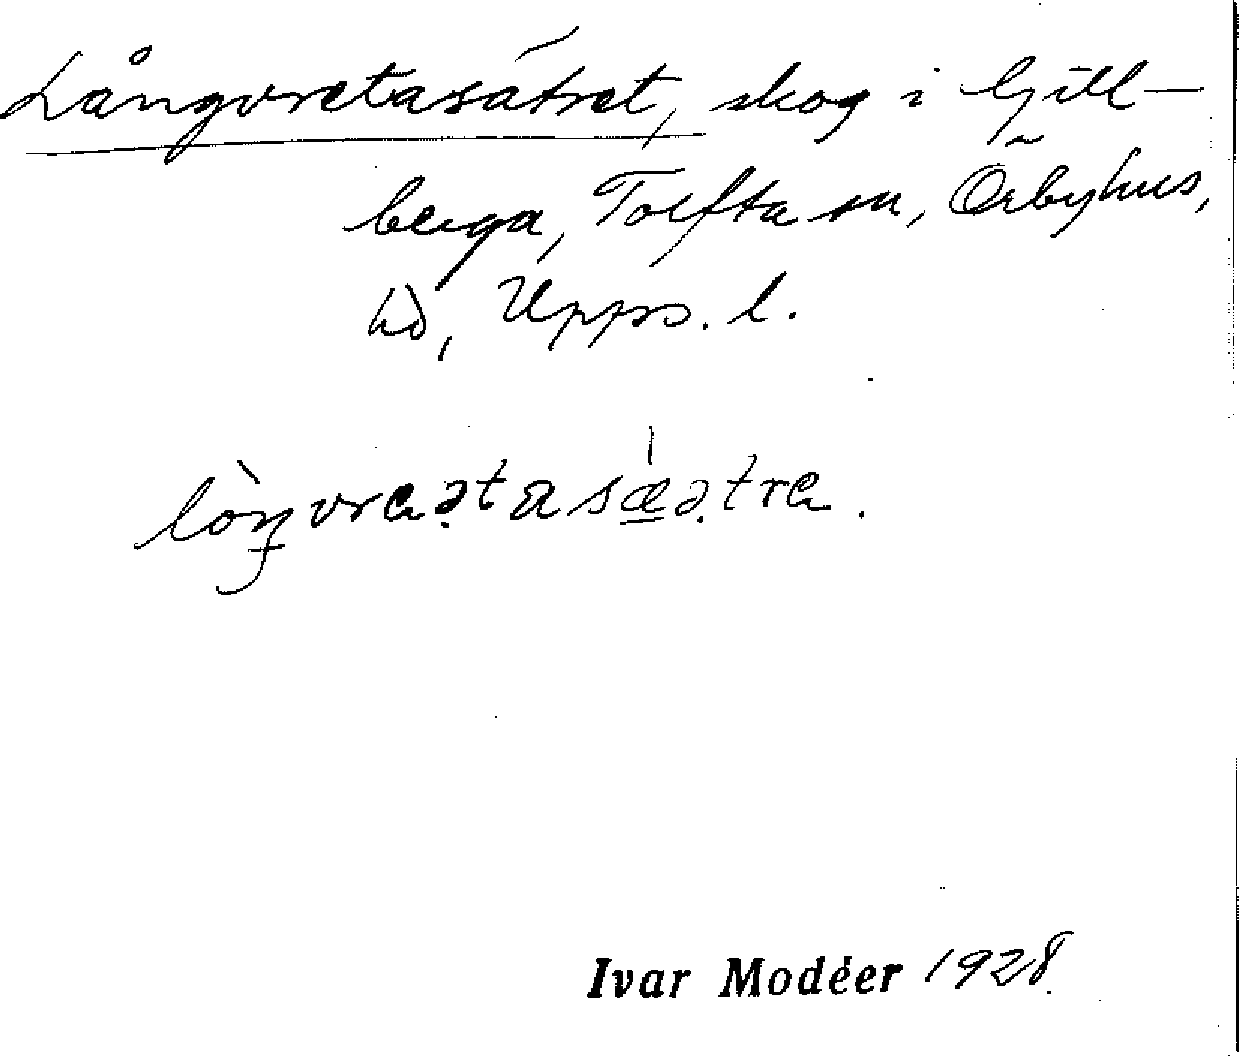 Långvretasätret, skog i Gill-
berga, Tolfta sn, Örbyhus,
hd, Upps. l.
lòŋvreə̣tasæ̲̀ə̣tre.
Ivar Modéer 1928.